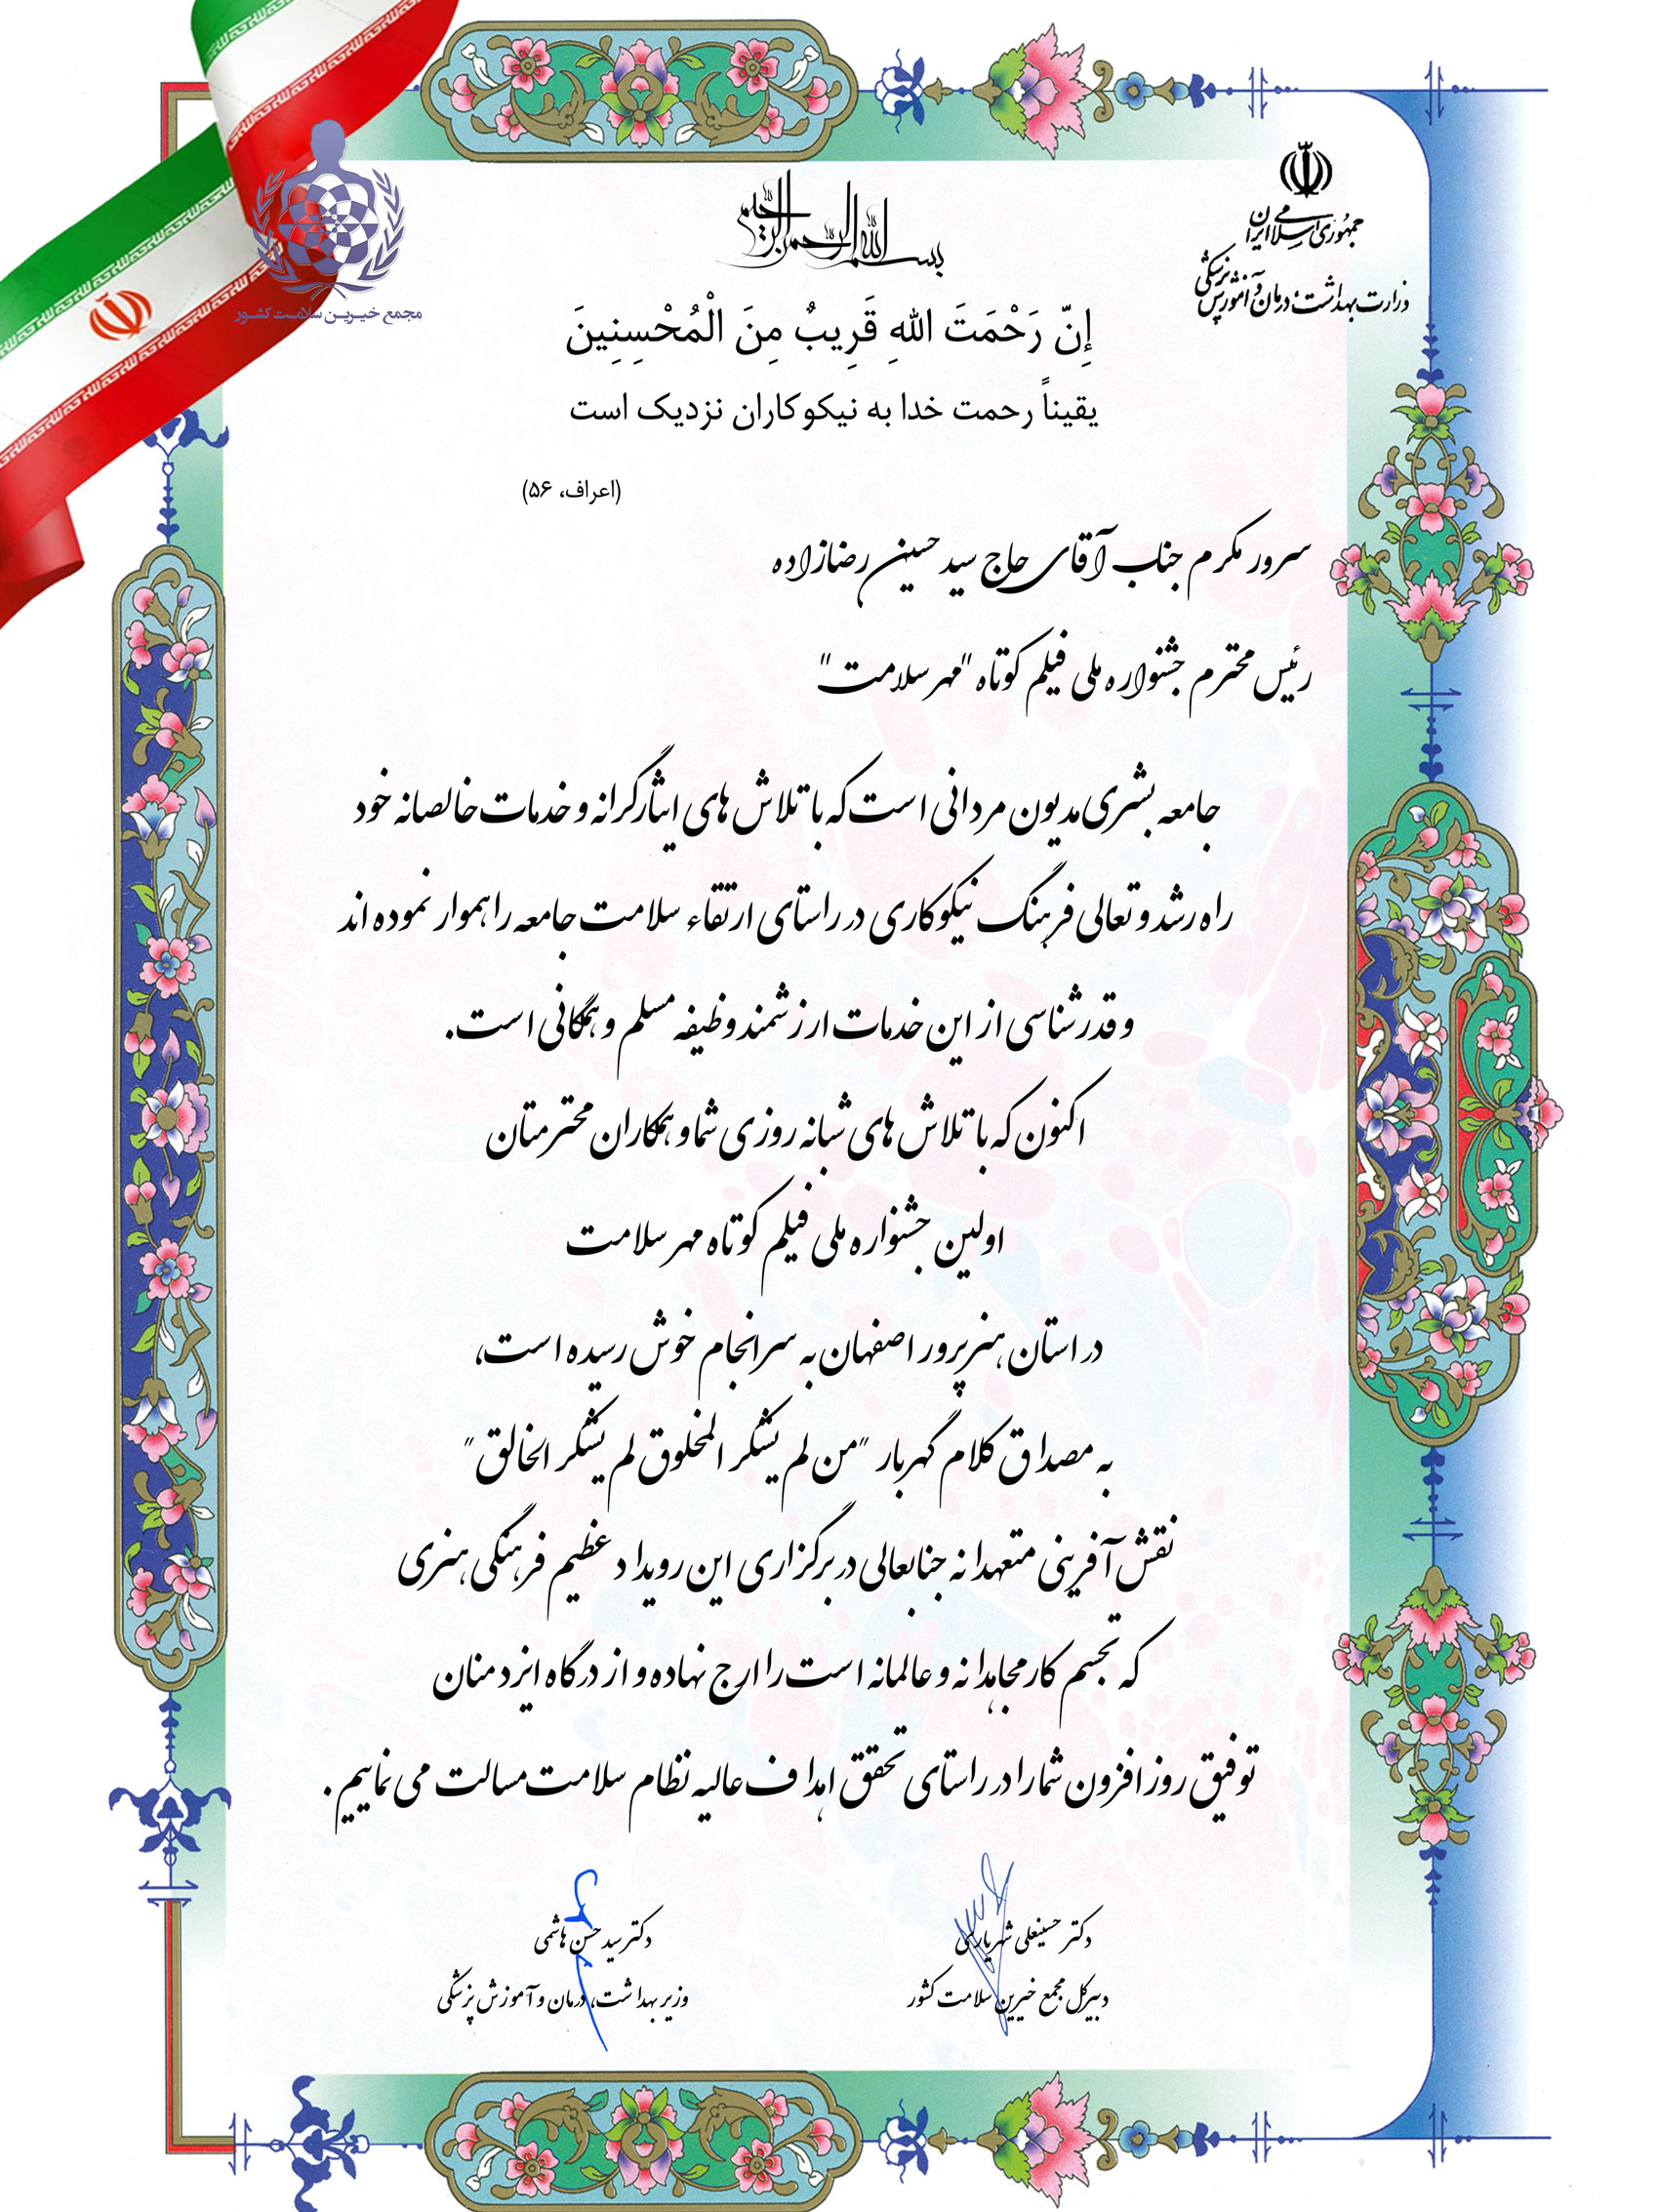 بسم الله الرحمن الرحیم
جمهوری اسلامی ایران
وزارت بهداشت، درمان و آموزش پزشکی
مجمع خیرین سلامت کشور
إِنّ رَحْمَتَ اللهِ قَرِیبٌ مِنَ الْمُحْسِنِینَ
یقیناً رحمت خدا به نیکوکاران نزدیک است
(اعراف، ۵۶)
سرور مکرم جناب آقای حاج سید حسین رضازاده
رئیس محترم جشنواره ملی فیلم کوتاه "مهر سلامت"
جامعه بشری مدیون مردانی است که با تلاش های ایثارگرانه و خدمات خالصانه خود
راه رشد و تعالی فرهنگ نیکوکاری در راستای ارتقاء سلامت جامعه را هموار نموده اند
و قدرشناسی از این خدمات ارزشمند وظیفه مسلم و همگانی است.
اکنون که با تلاش های شبانه روزی شما و همکاران محترمتان
اولین جشنواره ملی فیلم کوتاه مهر سلامت
در استان هنرپرور اصفهان به سرانجام خوش رسیده است،
به مصداق کلام گهربار "من لم یشکر المخلوق لم یشکر الخالق"
نقش آفرینی متعهدانه جنابعالی در برگزاری این رویداد عظیم فرهنگی هنری
که تجسم کار مجاهدانه و عالمانه است را ارج نهاده و از درگاه ایزد منان
توفیق روز افزون شما را در راستای تحقق اهداف عالیه نظام سلامت مسالت می نماییم.
دکتر حسینعلی شهریاری
دبیرکل مجمع خیرین سلامت کشور
دکتر سید حسن هاشمی
وزیر بهداشت، درمان و آموزش پزشکی